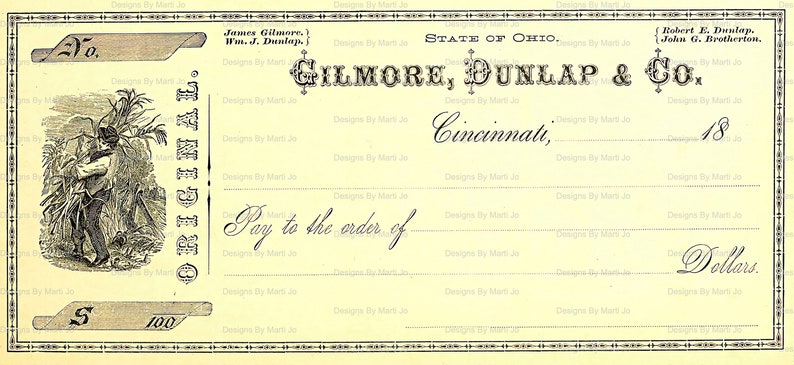 No.
James Gilmore.
Wm. J. Dunlap.
STATE OF OHIO.
Robert E. Dunlap.
John G. Brotherton.
GILMORE, DUNLAP & CO.
ORIGINAL.
Cincinnati, 18
Pay to the order of
Dollars.
$ 100
Designs By Marti Jo